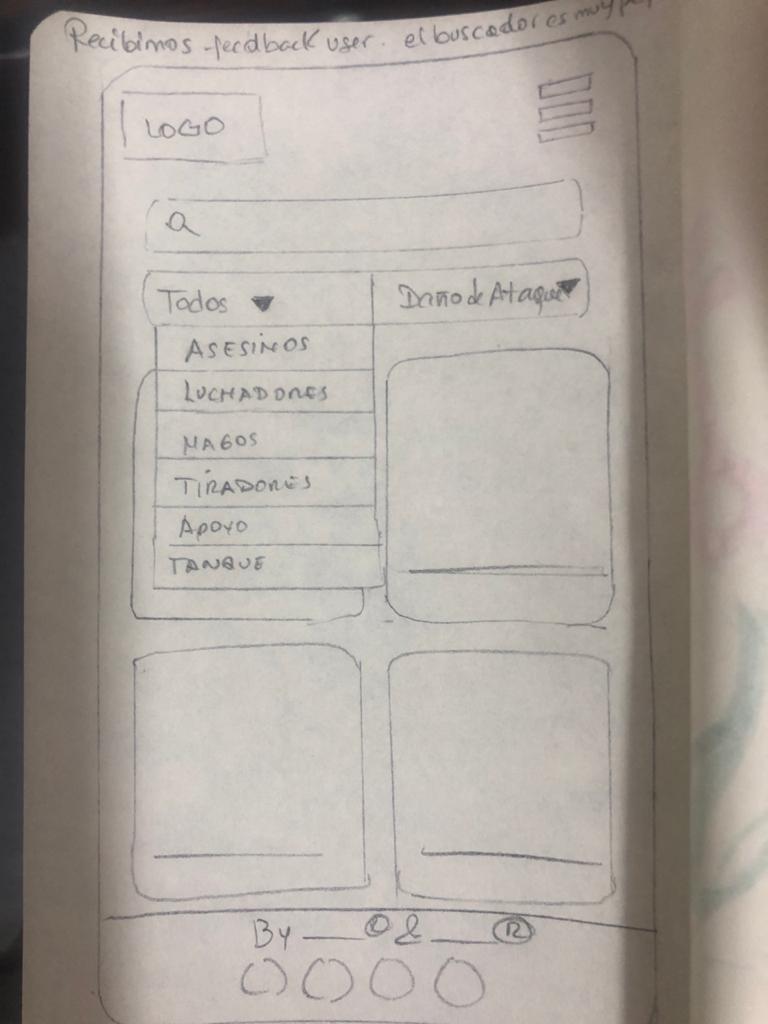 Recibimos feedback user. el buscador es muy
LOGO
Todos ▼ Daño de Ataque ▼
ASESINOS
LUCHADORES
MAGOS
TIRADORES
APOYO
TANQUE
By ___ © & ___ ®